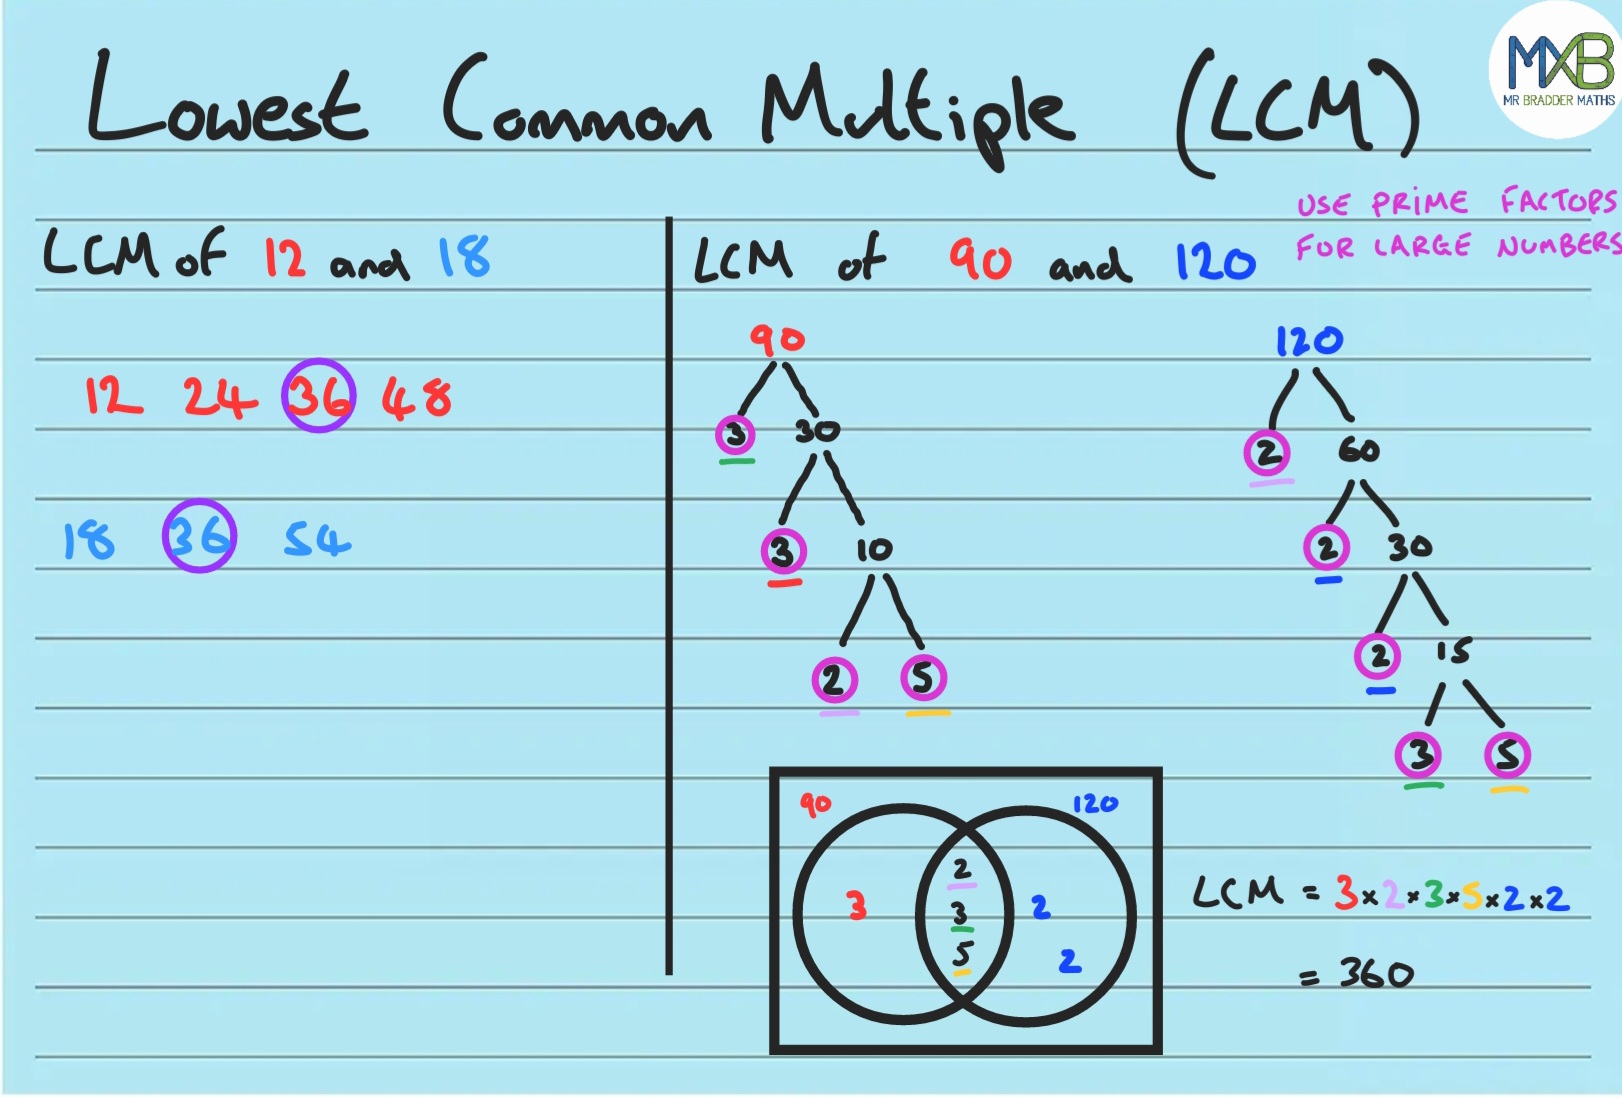 Lowest Common Multiple (LCM)
MXB
MR BRADDER MATHS
USE PRIME FACTORS
FOR LARGE NUMBERS
LCM of 12 and 18
12 24 36 48
18 36 54
LCM of 90 and 120
90
3 30
3 10
2 5
120
2 60
2 30
2 15
3 5
90 120
2
3 3 2
5 2
LCM = 3×2×3×5×2×2
= 360